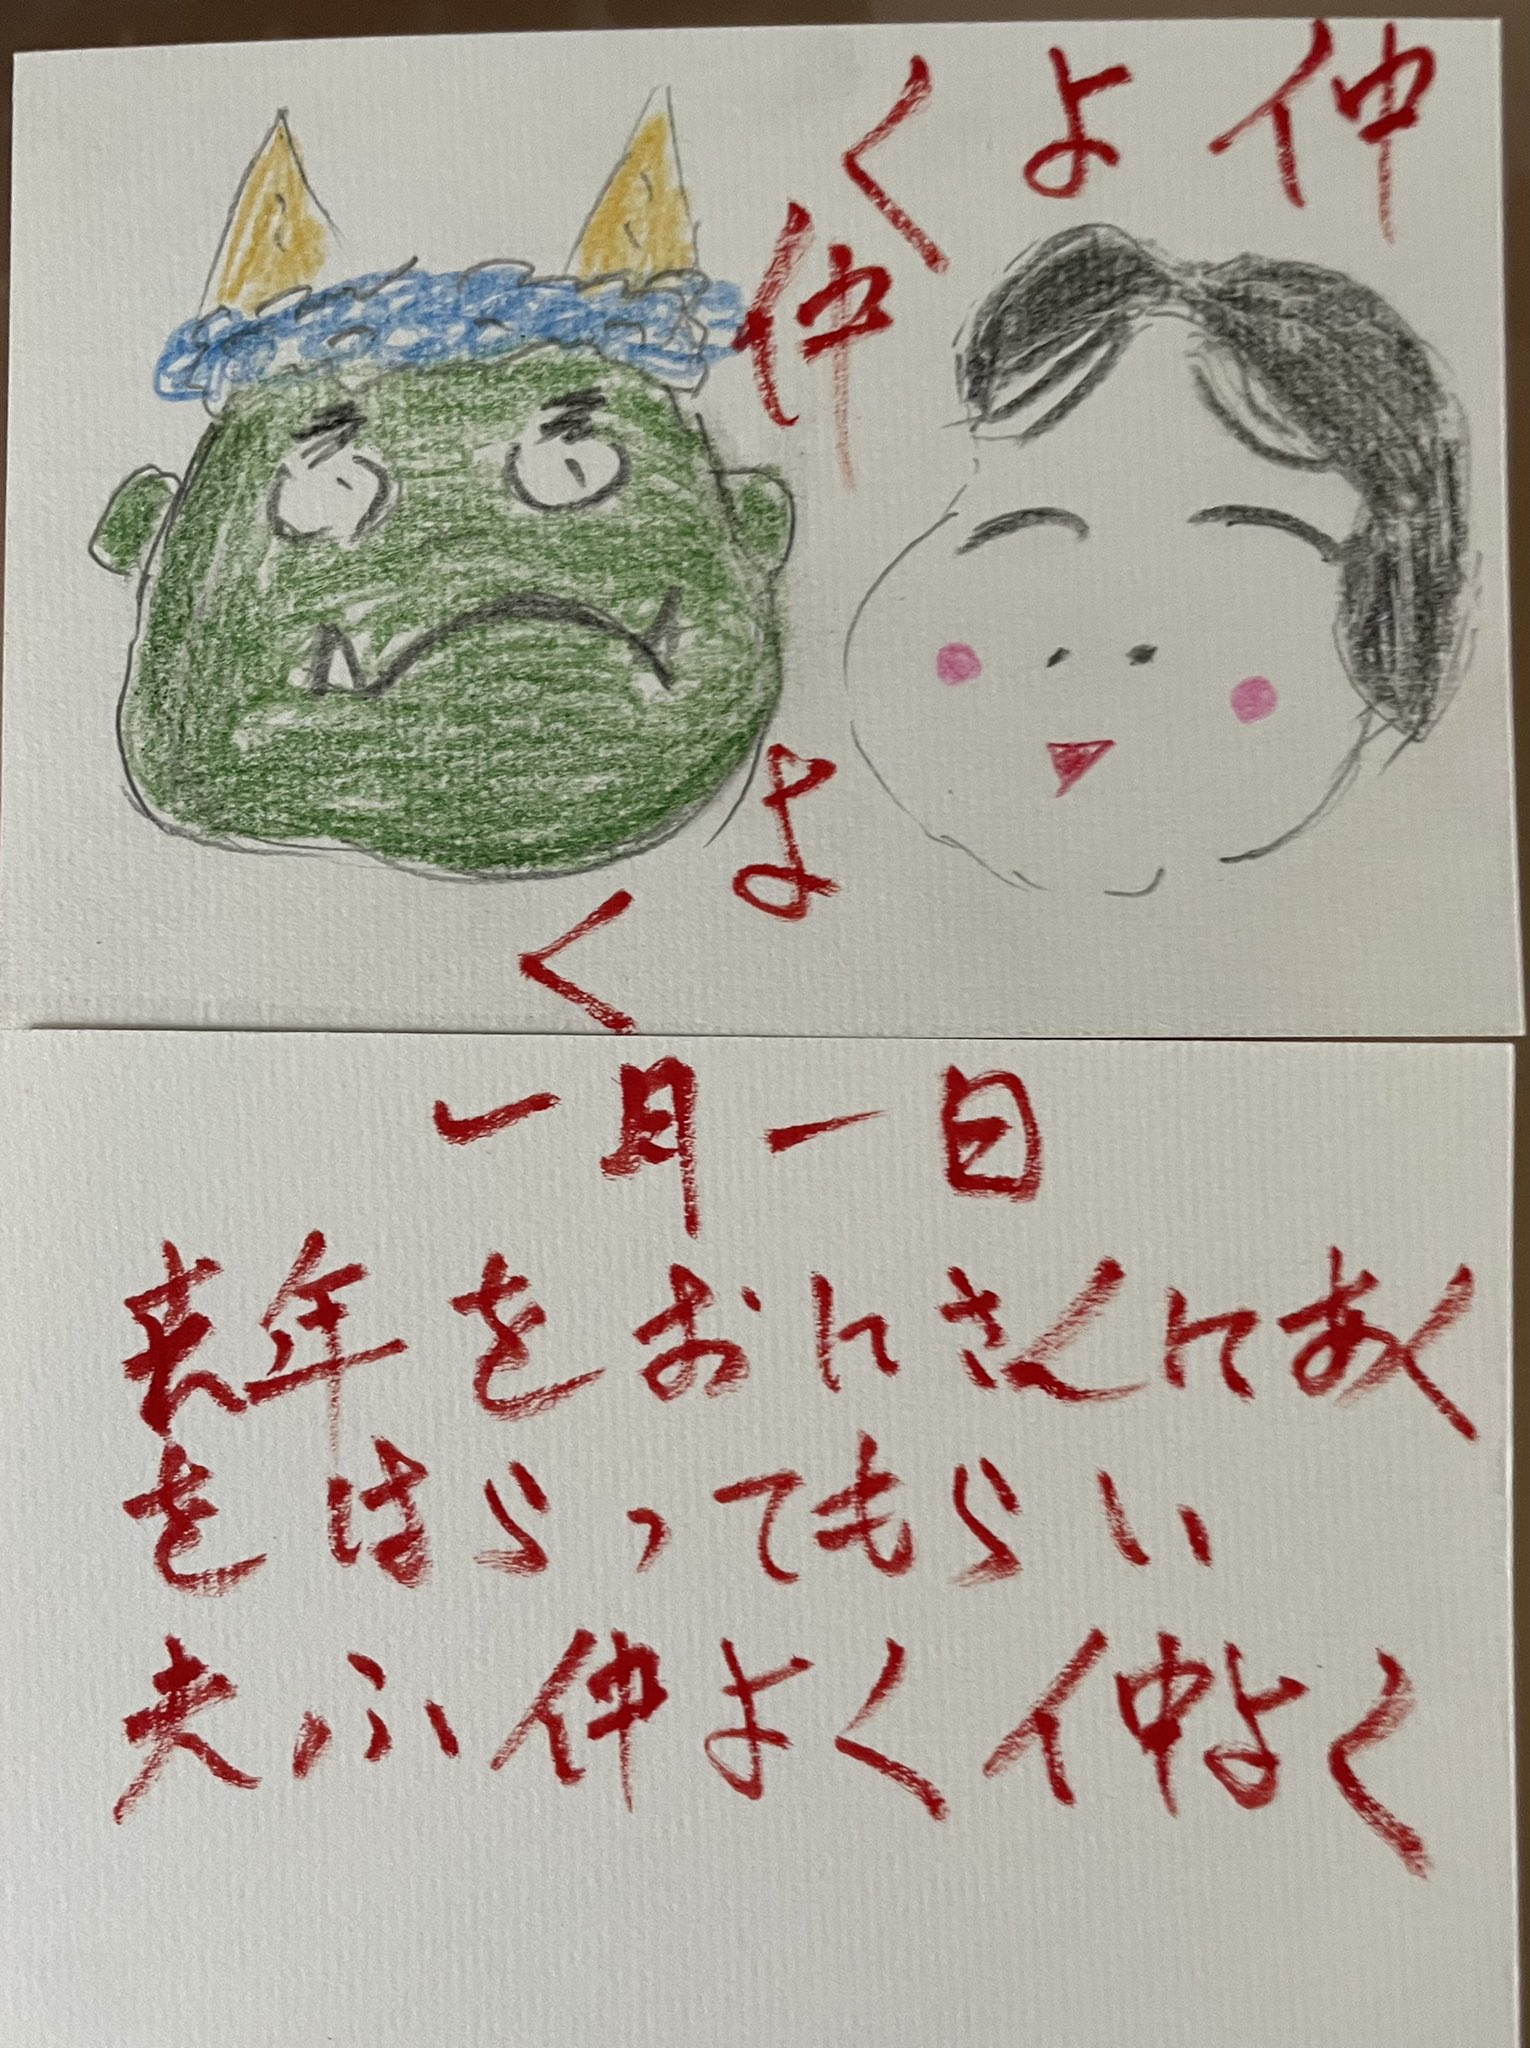 仲よく
仲よく
一月一日
来年をおにさんにあく
をはらってもらい
夫ふ仲よく仲よく